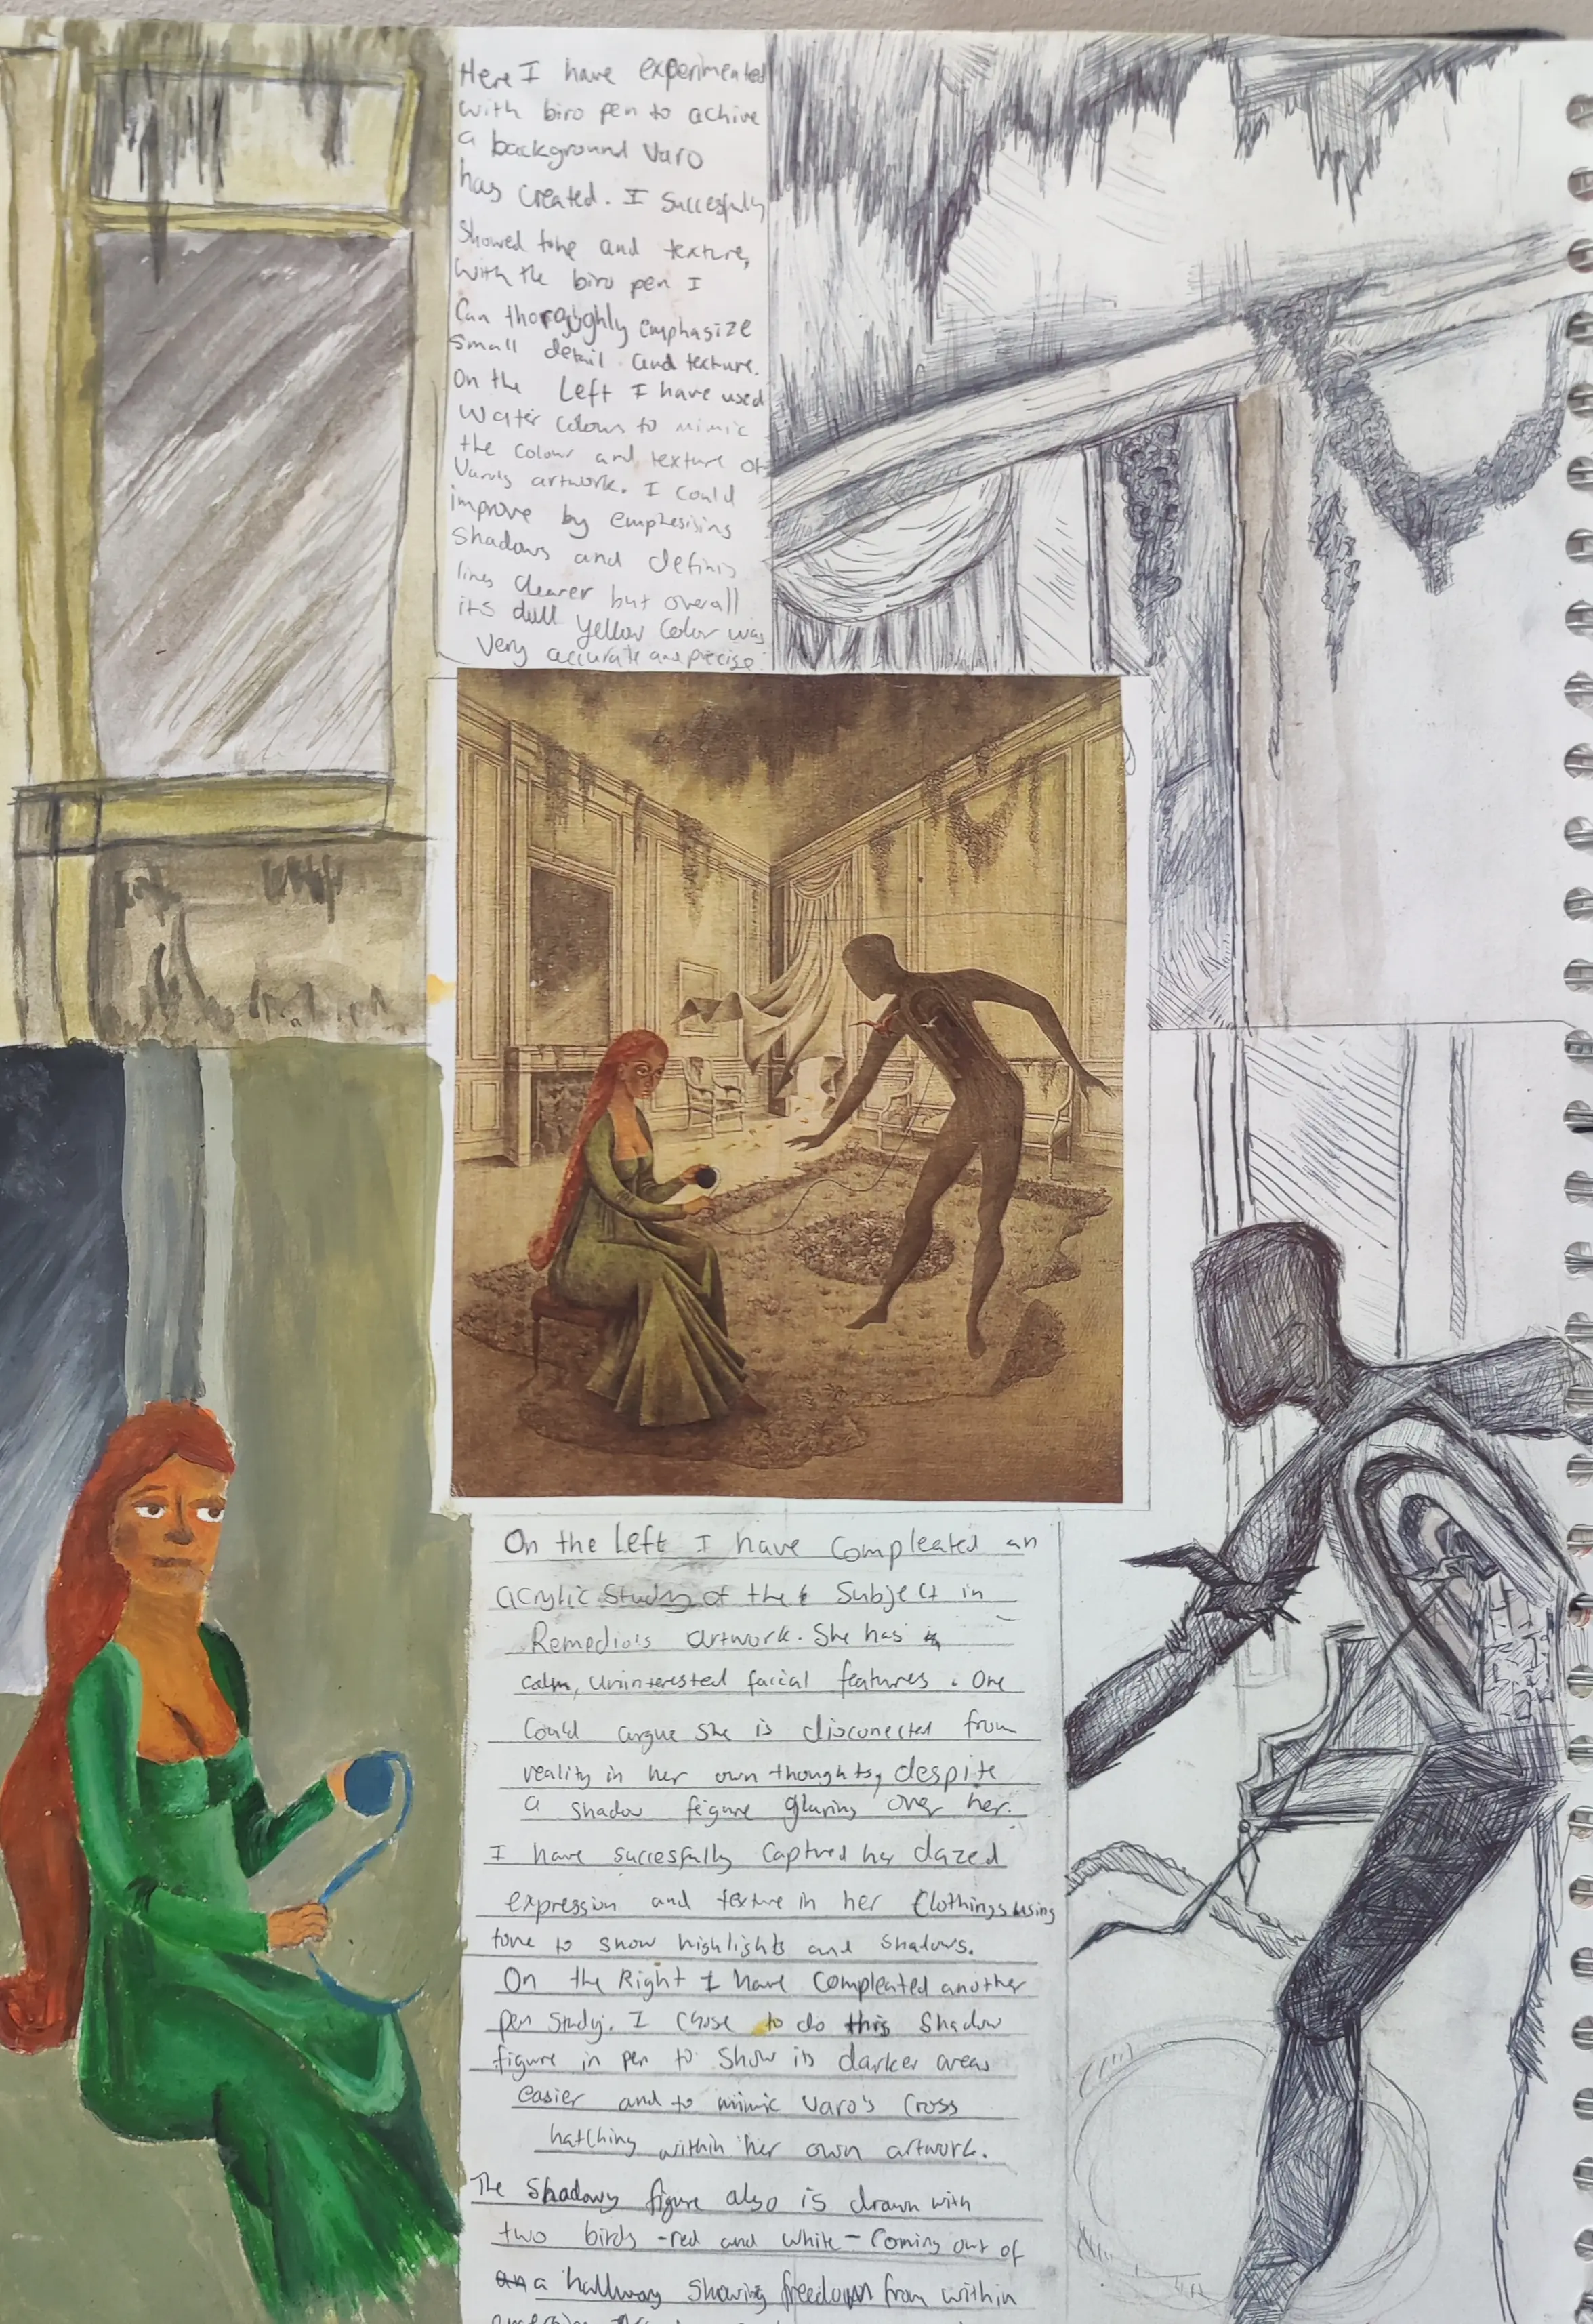 Here I have experimented
with biro pen to achive
a background Varo
has created. I succesfully
showed tone and texture,
with the biro pen I
Can thoroughly emphasize
small detail and texture.
On the Left I have used
water colours to mimic
the colour and texture of
Varo's artwork. I could
improve by emphesising
shadows and defining
lines clearer but overall
it's dull yellow color was
very accurate and precise.
On the Left I have compleated an
acrylic study of the subject in
Remedio's artwork. She has
calm, uninterested facial features. One
could argue she is disconected from
reality in her own thoughts, despite
a shadow feigure glaring over her.
I have succesfully captured her dazed
expression and texture in her clothings using
tone to show highlights and shadows.
On the Right I have compleated another
pen study. I chose to do this shadow
figure in pen to show its darker areas
easier and to mimic Varo's cross
hatching within her own artwork.
The shadowy figure also is drawn with
two birds -red and white- coming out of
a hallway showing freedom from within